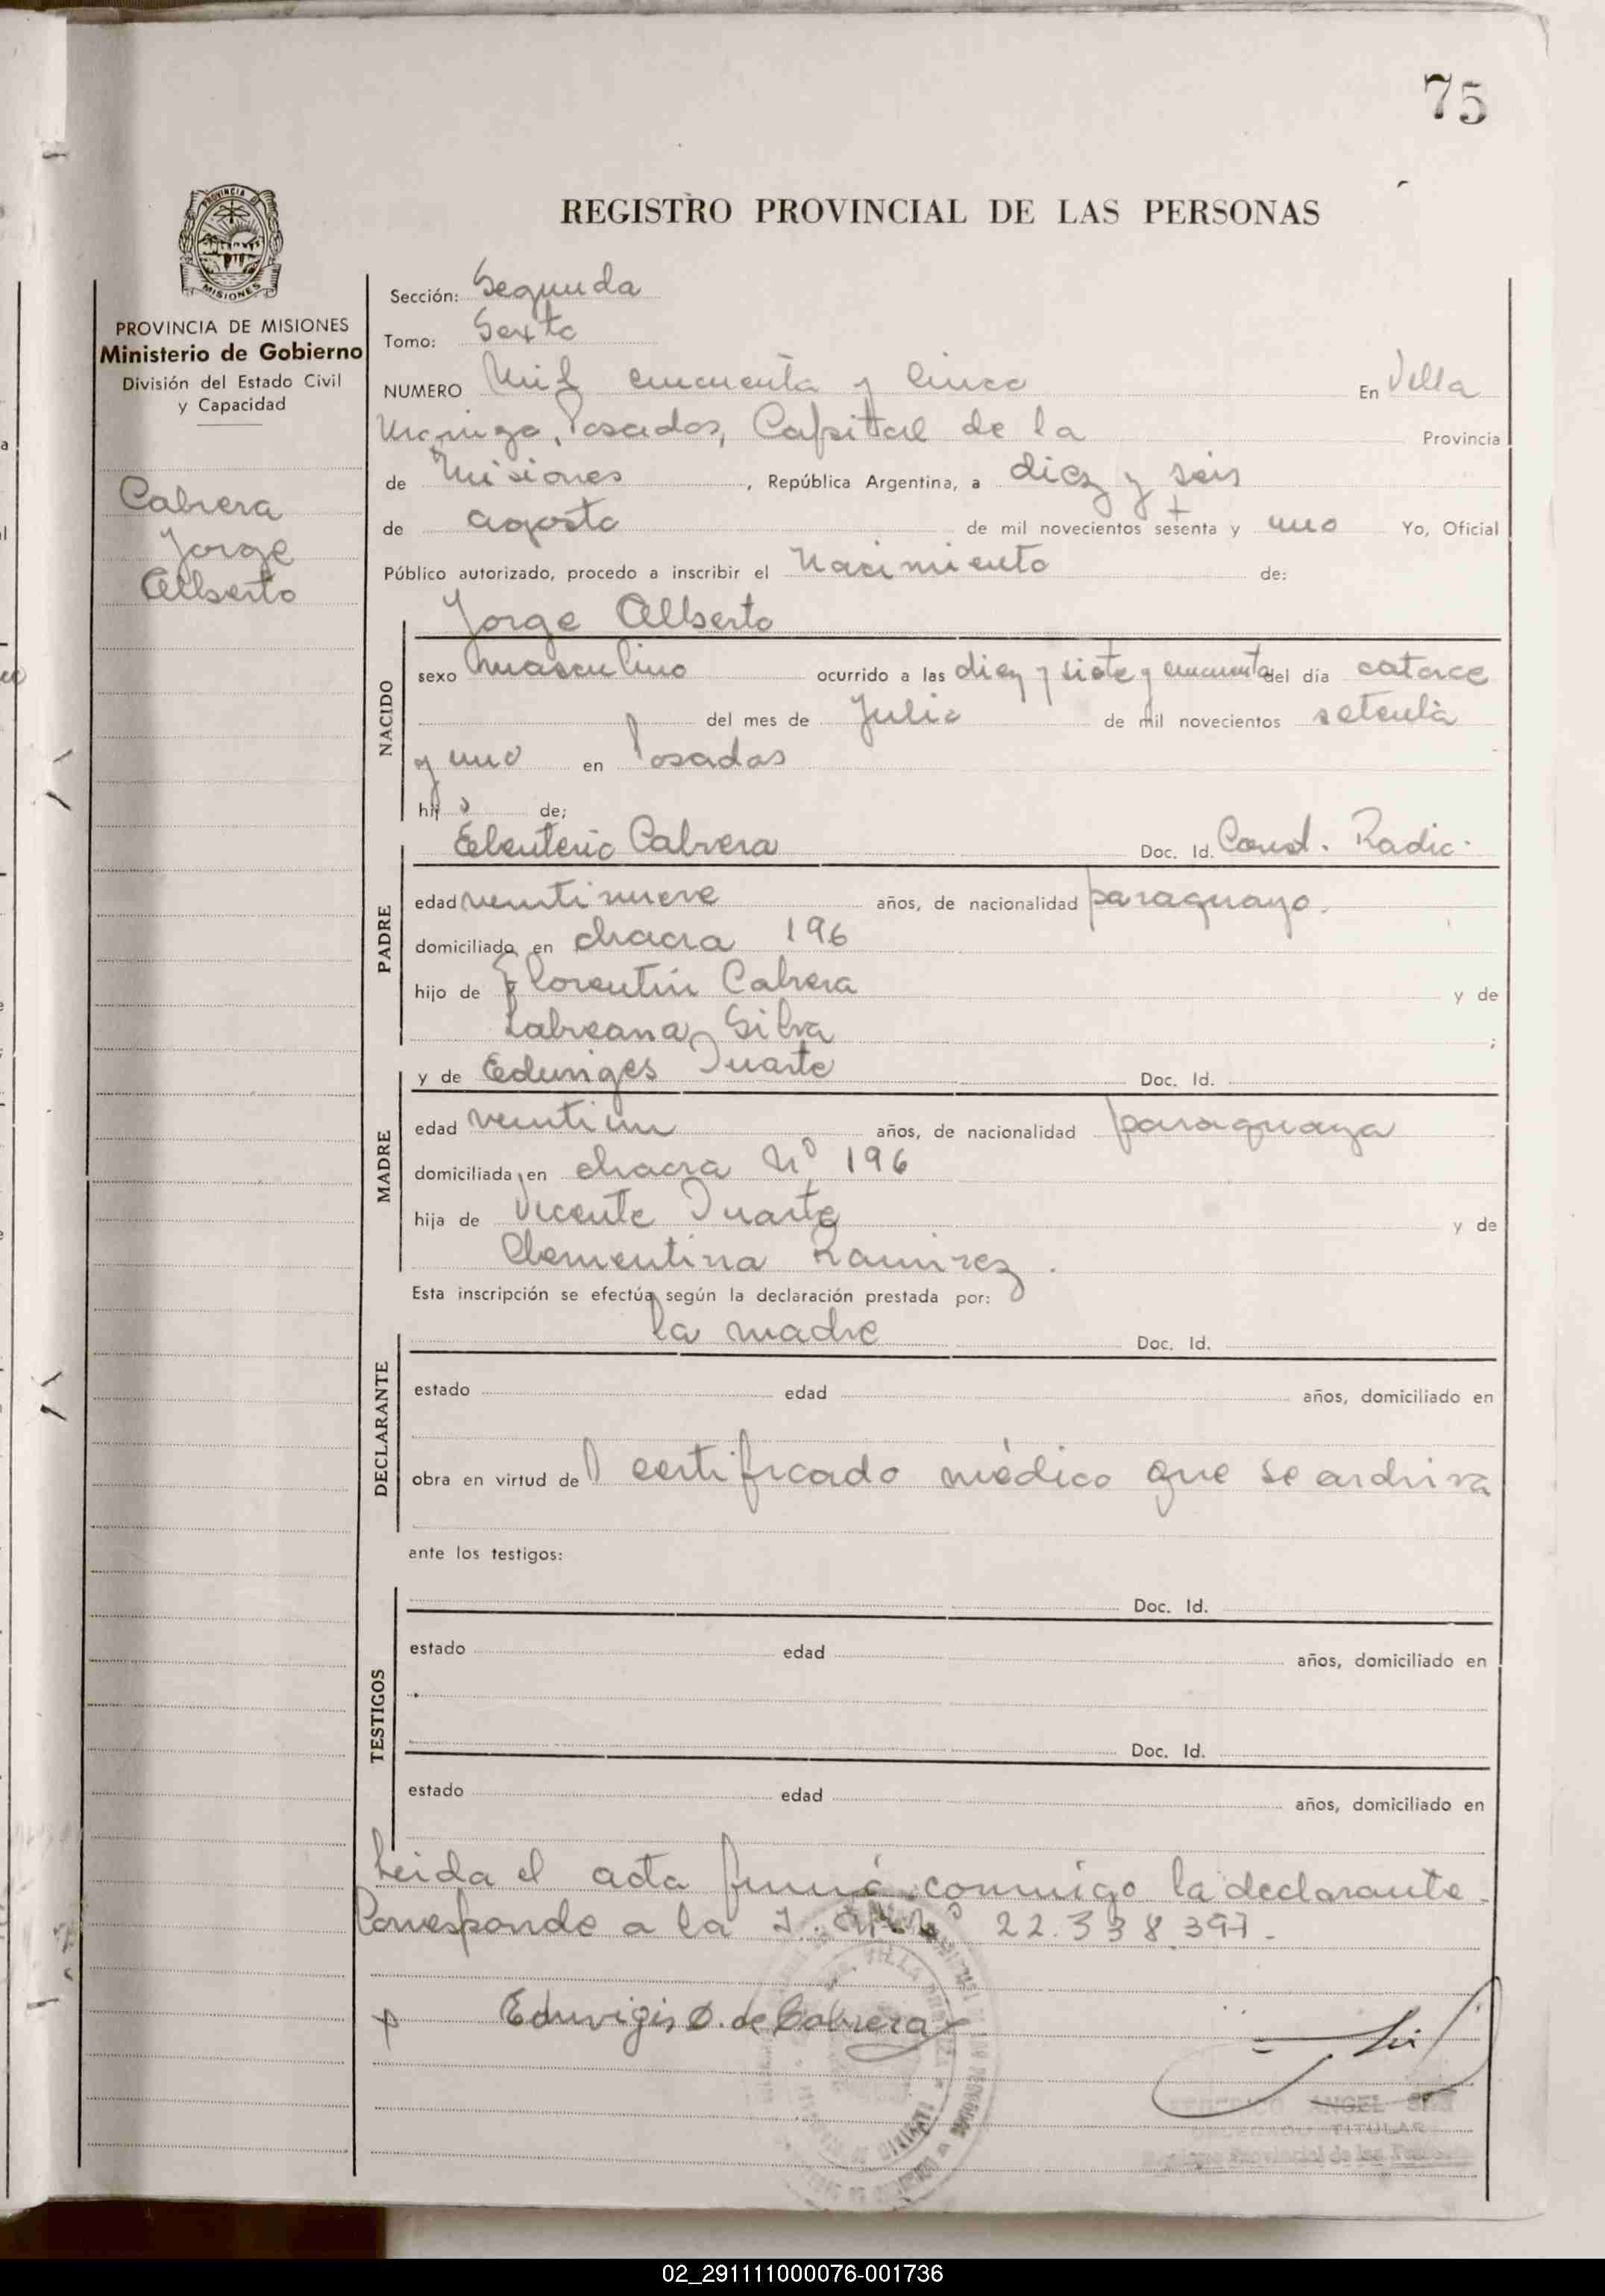 75
PROVINCIA DE
MISIONES
REGISTRO PROVINCIAL DE LAS PERSONAS
PROVINCIA DE MISIONES
Ministerio de Gobierno
División del Estado Civil
y Capacidad
Cabrera
Jorge
Alberto
Sección: Segunda
Tomo: Sexto
NUMERO Mil cincuenta y cinco En Villa
Urquiza, Posadas, Capital de la Provincia
de Misiones, República Argentina, a diez y seis
de agosto de mil novecientos setenta y uno Yo, Oficial
Público autorizado, procedo a inscribir el Nacimiento de:
Jorge Alberto
NACIDO
sexo masculino ocurrido a las diez y siete y cincuenta del día catorce
del mes de Julio de mil novecientos setenta
y uno en Posadas
hijo de;
PADRE
Eleuterio Cabrera Doc. Id. Const. Radic.
edad veintinueve años, de nacionalidad paraguayo.
domiciliado en chacra 196
hijo de Florentín Cabrera y de
Silva ;
MADRE
y de Eduviges Duarte Doc. Id.
edad veintiun años, de nacionalidad paraguaya
domiciliada en chacra Nº 196
hija de Vicente Duarte y de
Clementina Ramirez.
Esta inscripción se efectúa según la declaración prestada por:
DECLARANTE
la madre Doc. Id.
estado edad años, domiciliado en
obra en virtud del certificado médico que se archiva
ante los testigos:
TESTIGOS
Doc. Id.
estado edad años, domiciliado en
Doc. Id.
estado edad años, domiciliado en
Leida el acta firmá conmigo la declarante.
Corresponde a la 22.338.397.-
Eduvigis D. de Cabrera
ANGEL
TITULAR
Provincial de las
02_291111000076-001736